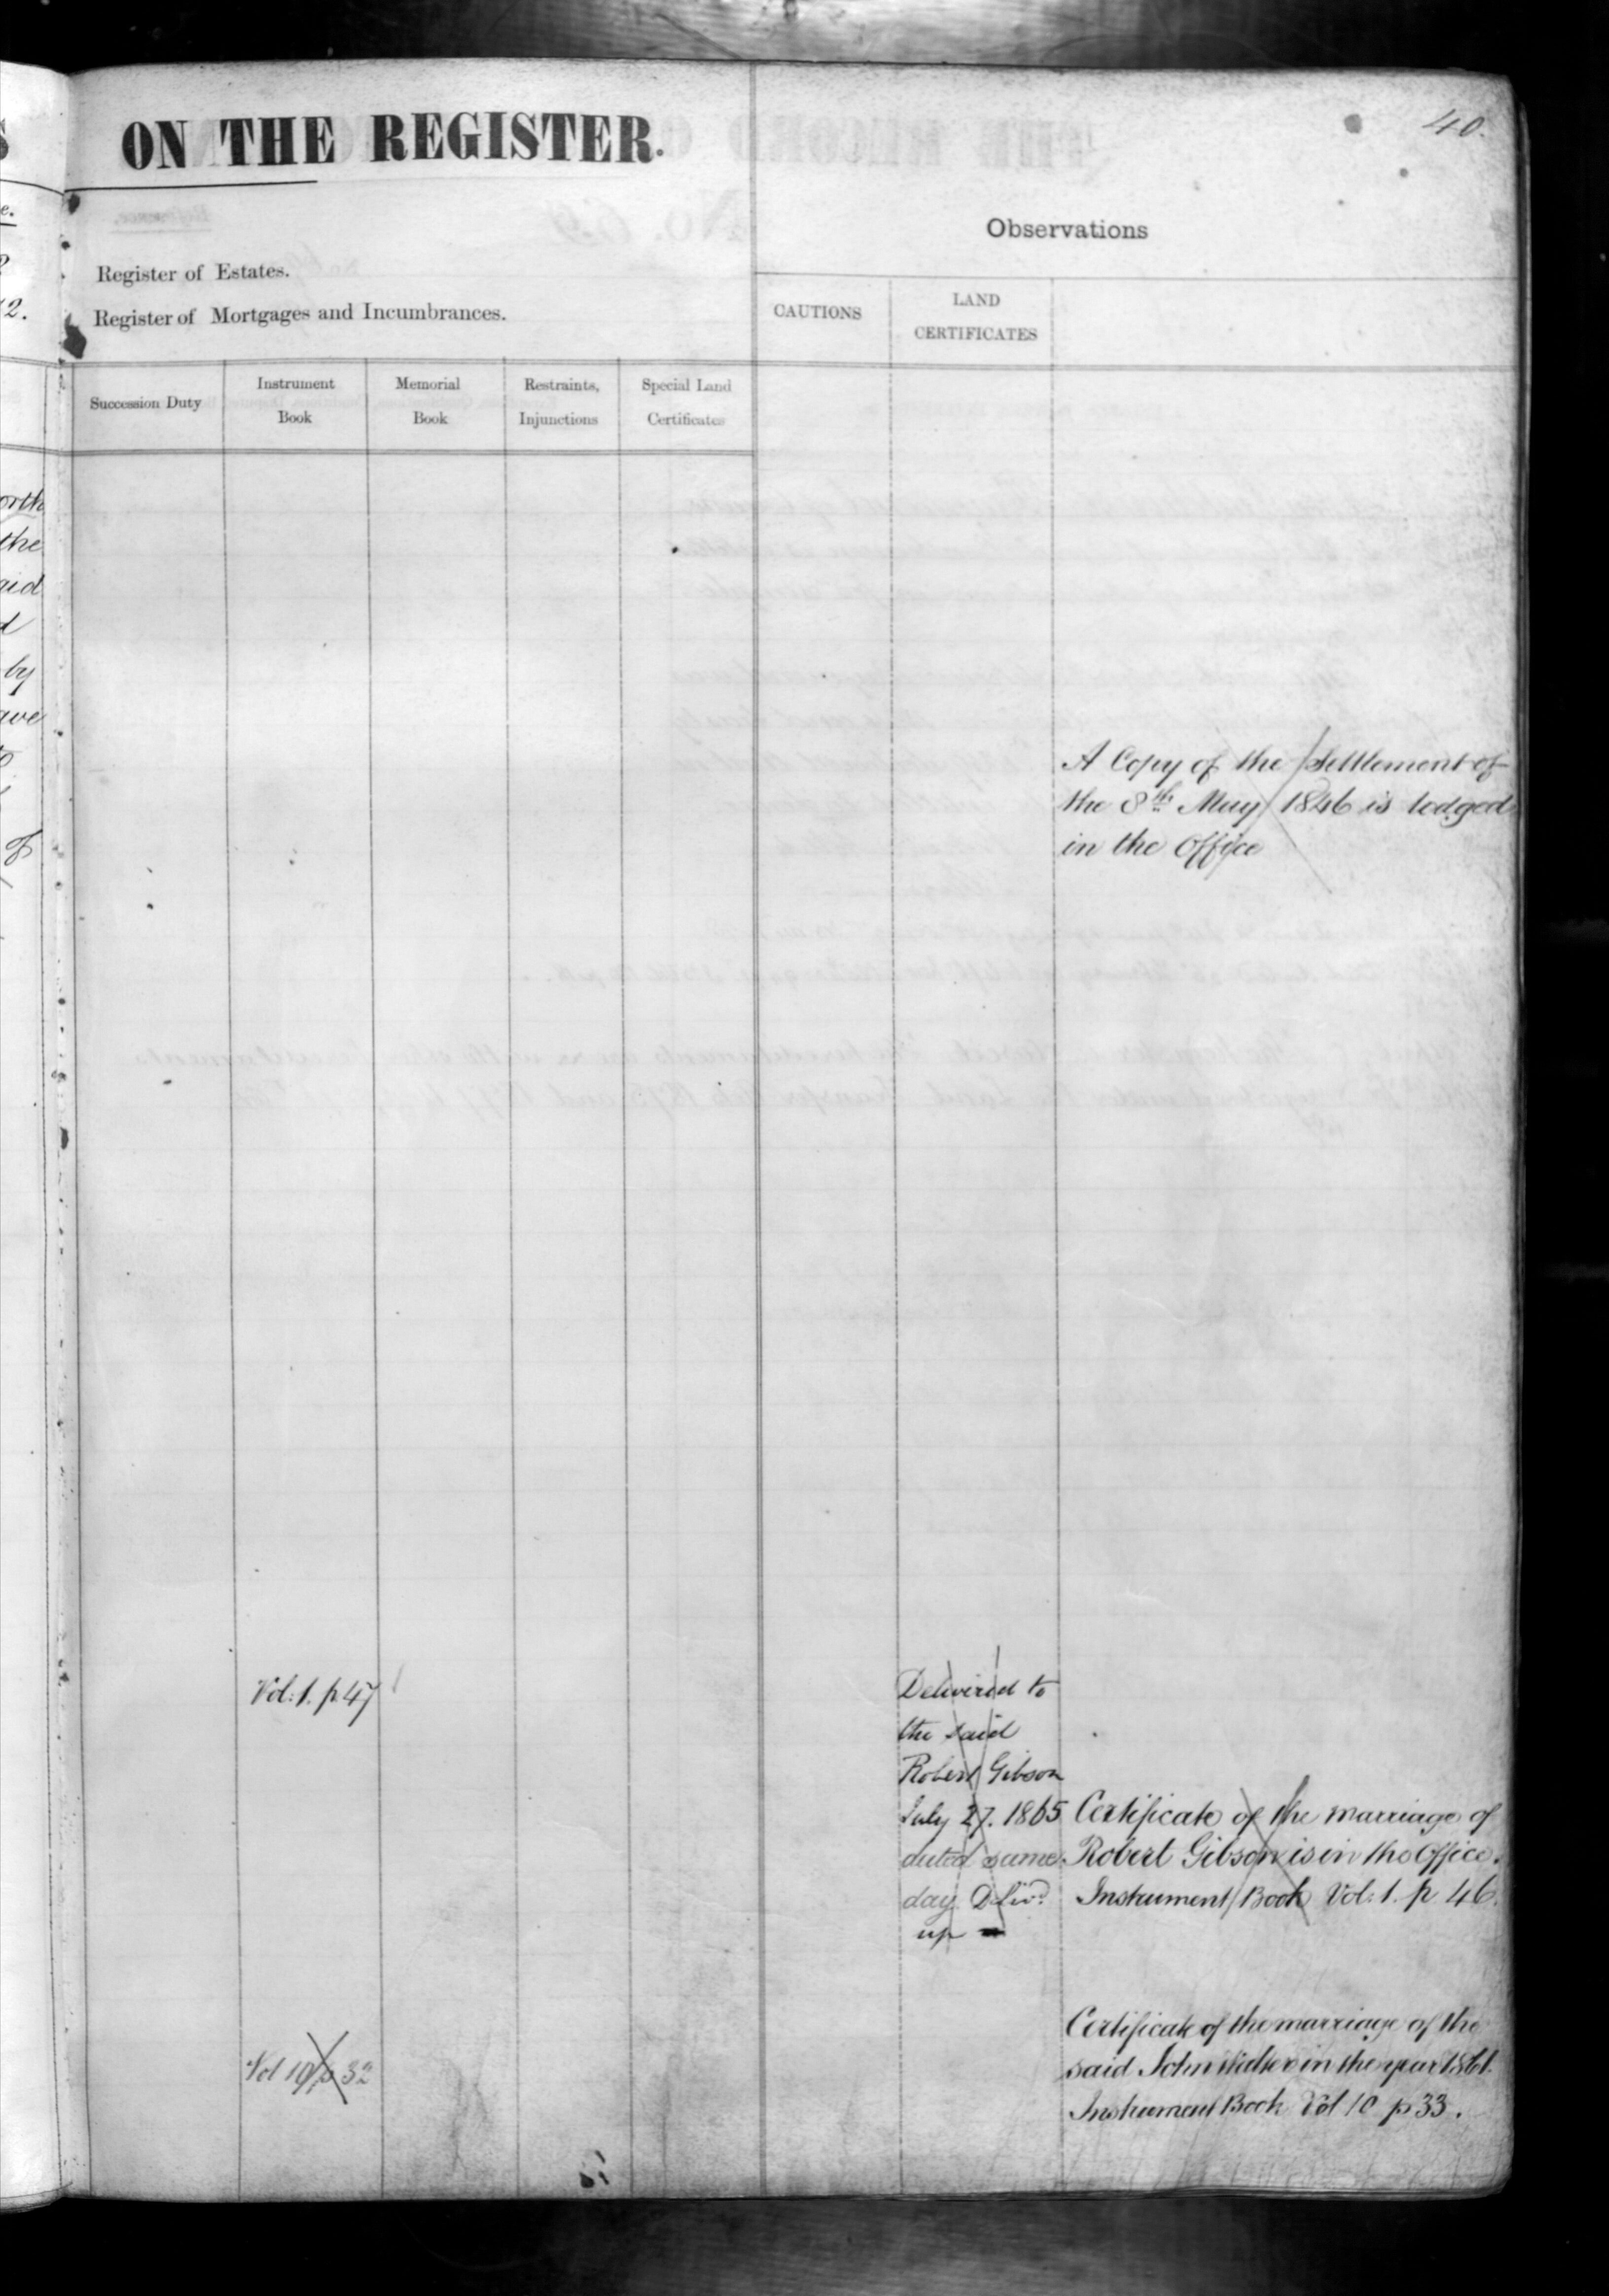 ON THE REGISTER.
40.
Observations
Register of Estates.
Register of Mortgages and Incumbrances.
CAUTIONS
LAND
CERTIFICATES
Succession Duty
Instrument
Book
Memorial
Book
Restraints,
Injunctions
Special Land
Certificates
e.
2.
orth
the
aid
d
by
ave
of
A Copy of the Settlement of
the 8th May 1846 is lodged
in the Office
Vol: 1. p 47
Delivered to
the said
Robert Gibson
July 27. 1865
dated same
day Delivd
up
Certificate of the marriage of
Robert Gibson is in the Office.
Instrument Book Vol: 1. p 46.
Vol 10 p 32
Certificate of the marriage of the
said John in the year 1861.
Instrument Book Vol 10 p 33.